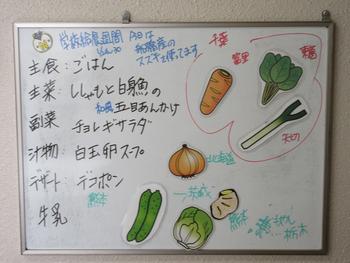 学校給食週間 今日は
船橋産の
スズキを使ってます
主食：ごはん
主菜：ししゃもと白身魚の
和風五目あんかけ
副菜 チョレギサラダ
汁物：白玉卵スープ
デザート：デコポン
牛乳
千葉
富里
矢切
北海道
茨城
熊本
熊本
栃木